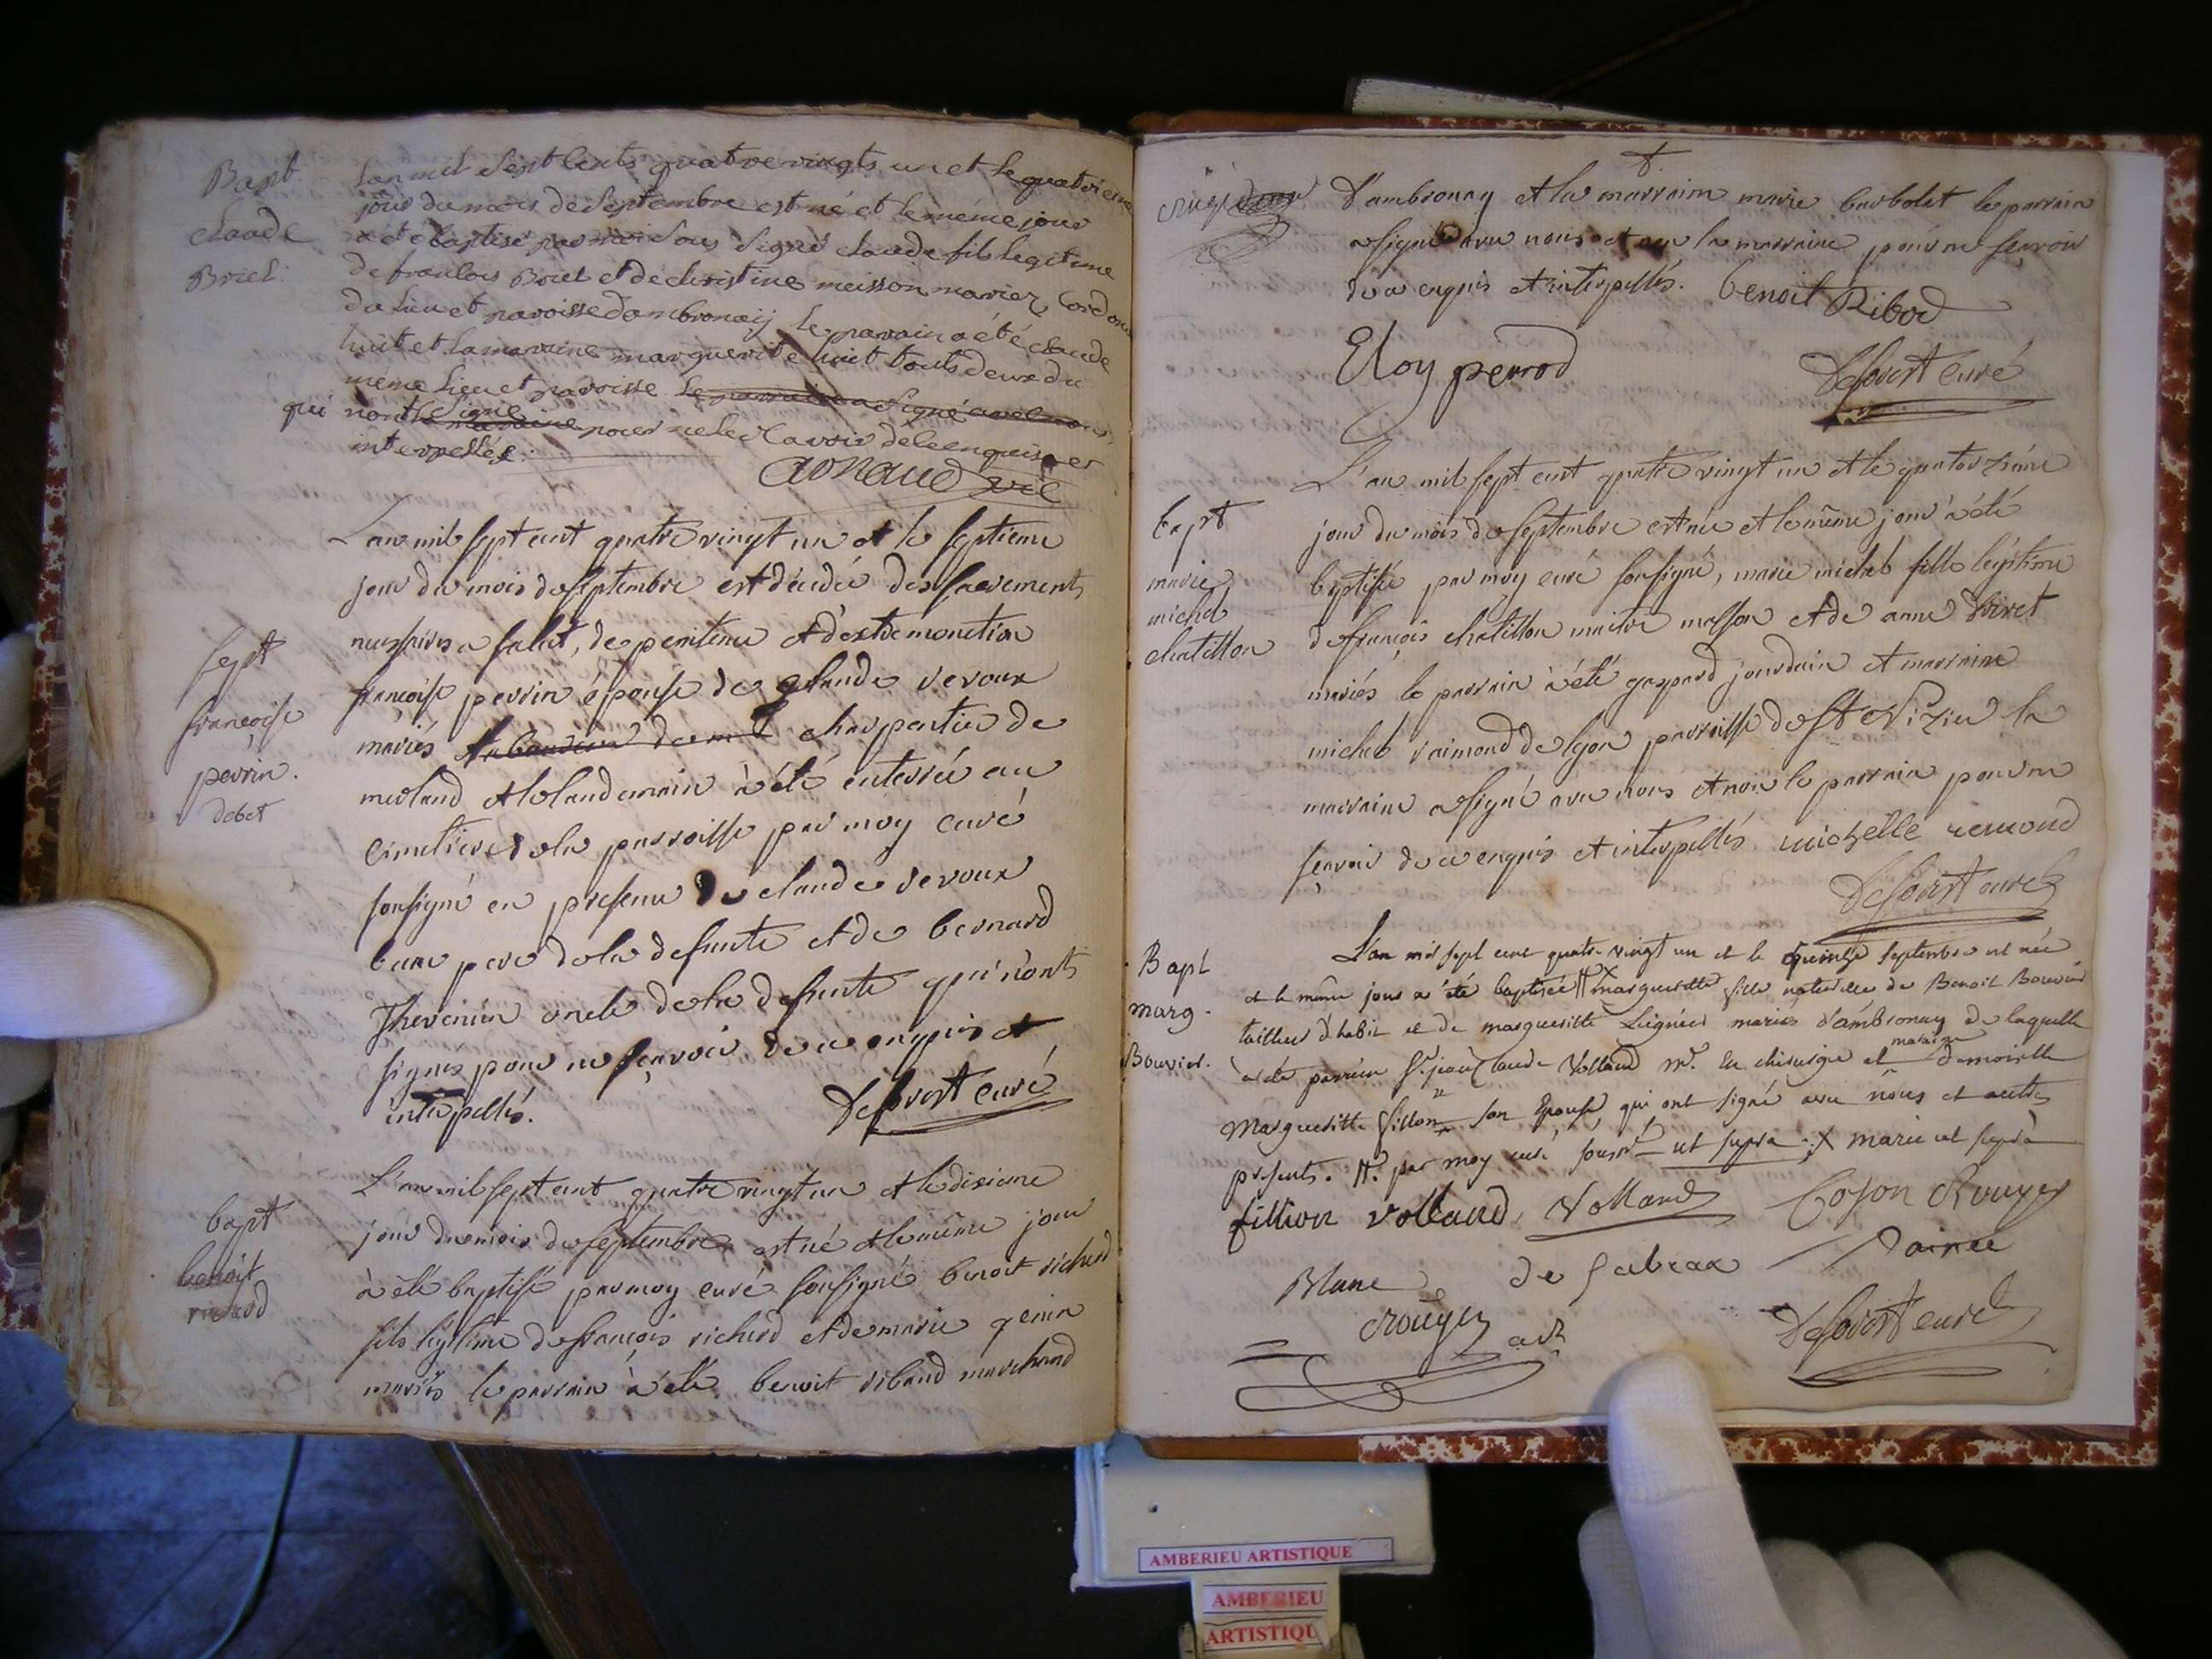 Bapt
claude
Briel.
Lan mil Sept Cents quatre vingts un et le quatrieme
jour du mois de Septembre est né et le même jour
a été baptisé par moi Sous Signé claude fils legitime
de francois Briel et de christine meisson mariez Cordon
du Lieu et paroisse dambronaÿ le parain a été claude
huit et la maraine marguerite huit touts deux du
même Lieu et paroisse Le parain a Signé avec nous
qui nont Signé maraine pour ne le Savoir de ce enquis et
interpellés.
Arnaud vic
L'an mil sept cent quatre vingt un et le septieme
jour du mois de septembre est décédée des sacrements
necessaires a salut, de penitence et d'extremonction
sept
francoise
perrin.
debet
francoise perrin épouse de claude revoux
mariés charpentier de
merland et le landemain à été enterrée au
cimetiere de la parroisse par moy curé
sousigné en presence de claude revoux
beau pere de la defunte et de bernard
Thevenin oncle de la defunte qui n'ont
signés pour ne sçavoir de ce enquis et
interpellés.
Desvort curé
bapt
benoit
richard
L'an mil sept cent quatre vingt un et le dixieme
jour du mois de septembre est né et le même jour
à été baptisé par moy curé sousigné benoit richard
fils légitime de françois richard et de marie genin
mariés le parrain à été benoit ribaud marchand
d'ambronay et la marraine marie barbolat le parrain
a signé avec nous et non la marraine pour ne sçavoir
de ce enquis et interpellés. benoit Ribod
Eloy perrod
Desvort curé
bapt
marie
michel
chatillon
L'an mil sept cent quatre vingt un et le quatorzième
jour du mois de septembre est née et le même jour à été
baptisée par moy curé sousigné, marie michel fille légitime
de françois chatillon maitre masson et de anne Voiret
mariés le parrain à été gaspard jourdain et marraine
michel raimond de lyon parroisse de St Nizier la
marraine a signé avec nous et non le parrain pour ne
sçavoir de ce enquis et interpellés michelle remond
Desvort curé
Bapt
marg.
Bouvier.
L'an mil sept cent quatre vingt un et le quinze septembre est née
et le même jour a été baptisée # marguerite fille naturelle de Benoit Bouvier
tailleur d'habit et de marguerite Leignier mariés d'ambronay de laquelle
a été parrein Sr. jean Claude Volland mr. en chirurgie et maraine demoiselle
Marguerite fillion son Epouse, qui ont signé avec nous et autres
présents. #. par moy curé soussné ut supra. X marie ut suprà
fillion volland, Volland Cozon Rouyer
Blanc de Dainee
Rouyer adt
Desvort curé
AMBERIEU ARTISTIQUE
AMBERIEU
ARTISTIQU